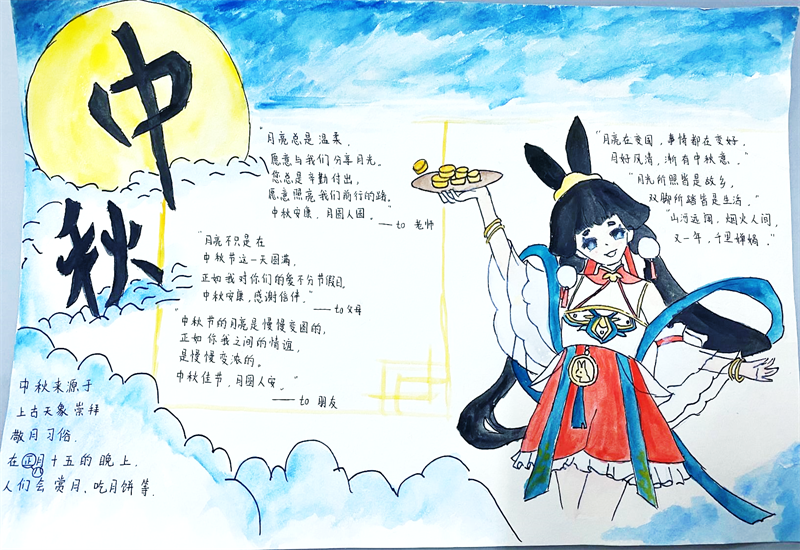 中秋
"月亮总是温柔,
愿意与我们分享月光。
您总是辛勤付出,
愿意照亮我们前行的路。
中秋安康,月圆人圆。"
——to 老师
"月亮不只是在
中秋节这一天圆满,
正如我对你们的爱不分节假日,
中秋安康,感谢信伴。"
——to父母
"中秋节的月亮是慢慢变圆的,
正如你我之间的情谊,
是慢慢变浓的。
中秋佳节,月圆人安。"
——to 朋友
"月亮在变圆,事情都在变好,
月好风清,渐有中秋意。"
"月光所照皆是故乡,
双脚所踏皆是生活。"
"山河远阔,烟火人间,
又一年,千里婵娟。"
中秋来源于
上古天象崇拜
敬月习俗.
在八月十五的晚上,
人们会赏月、吃月饼等.